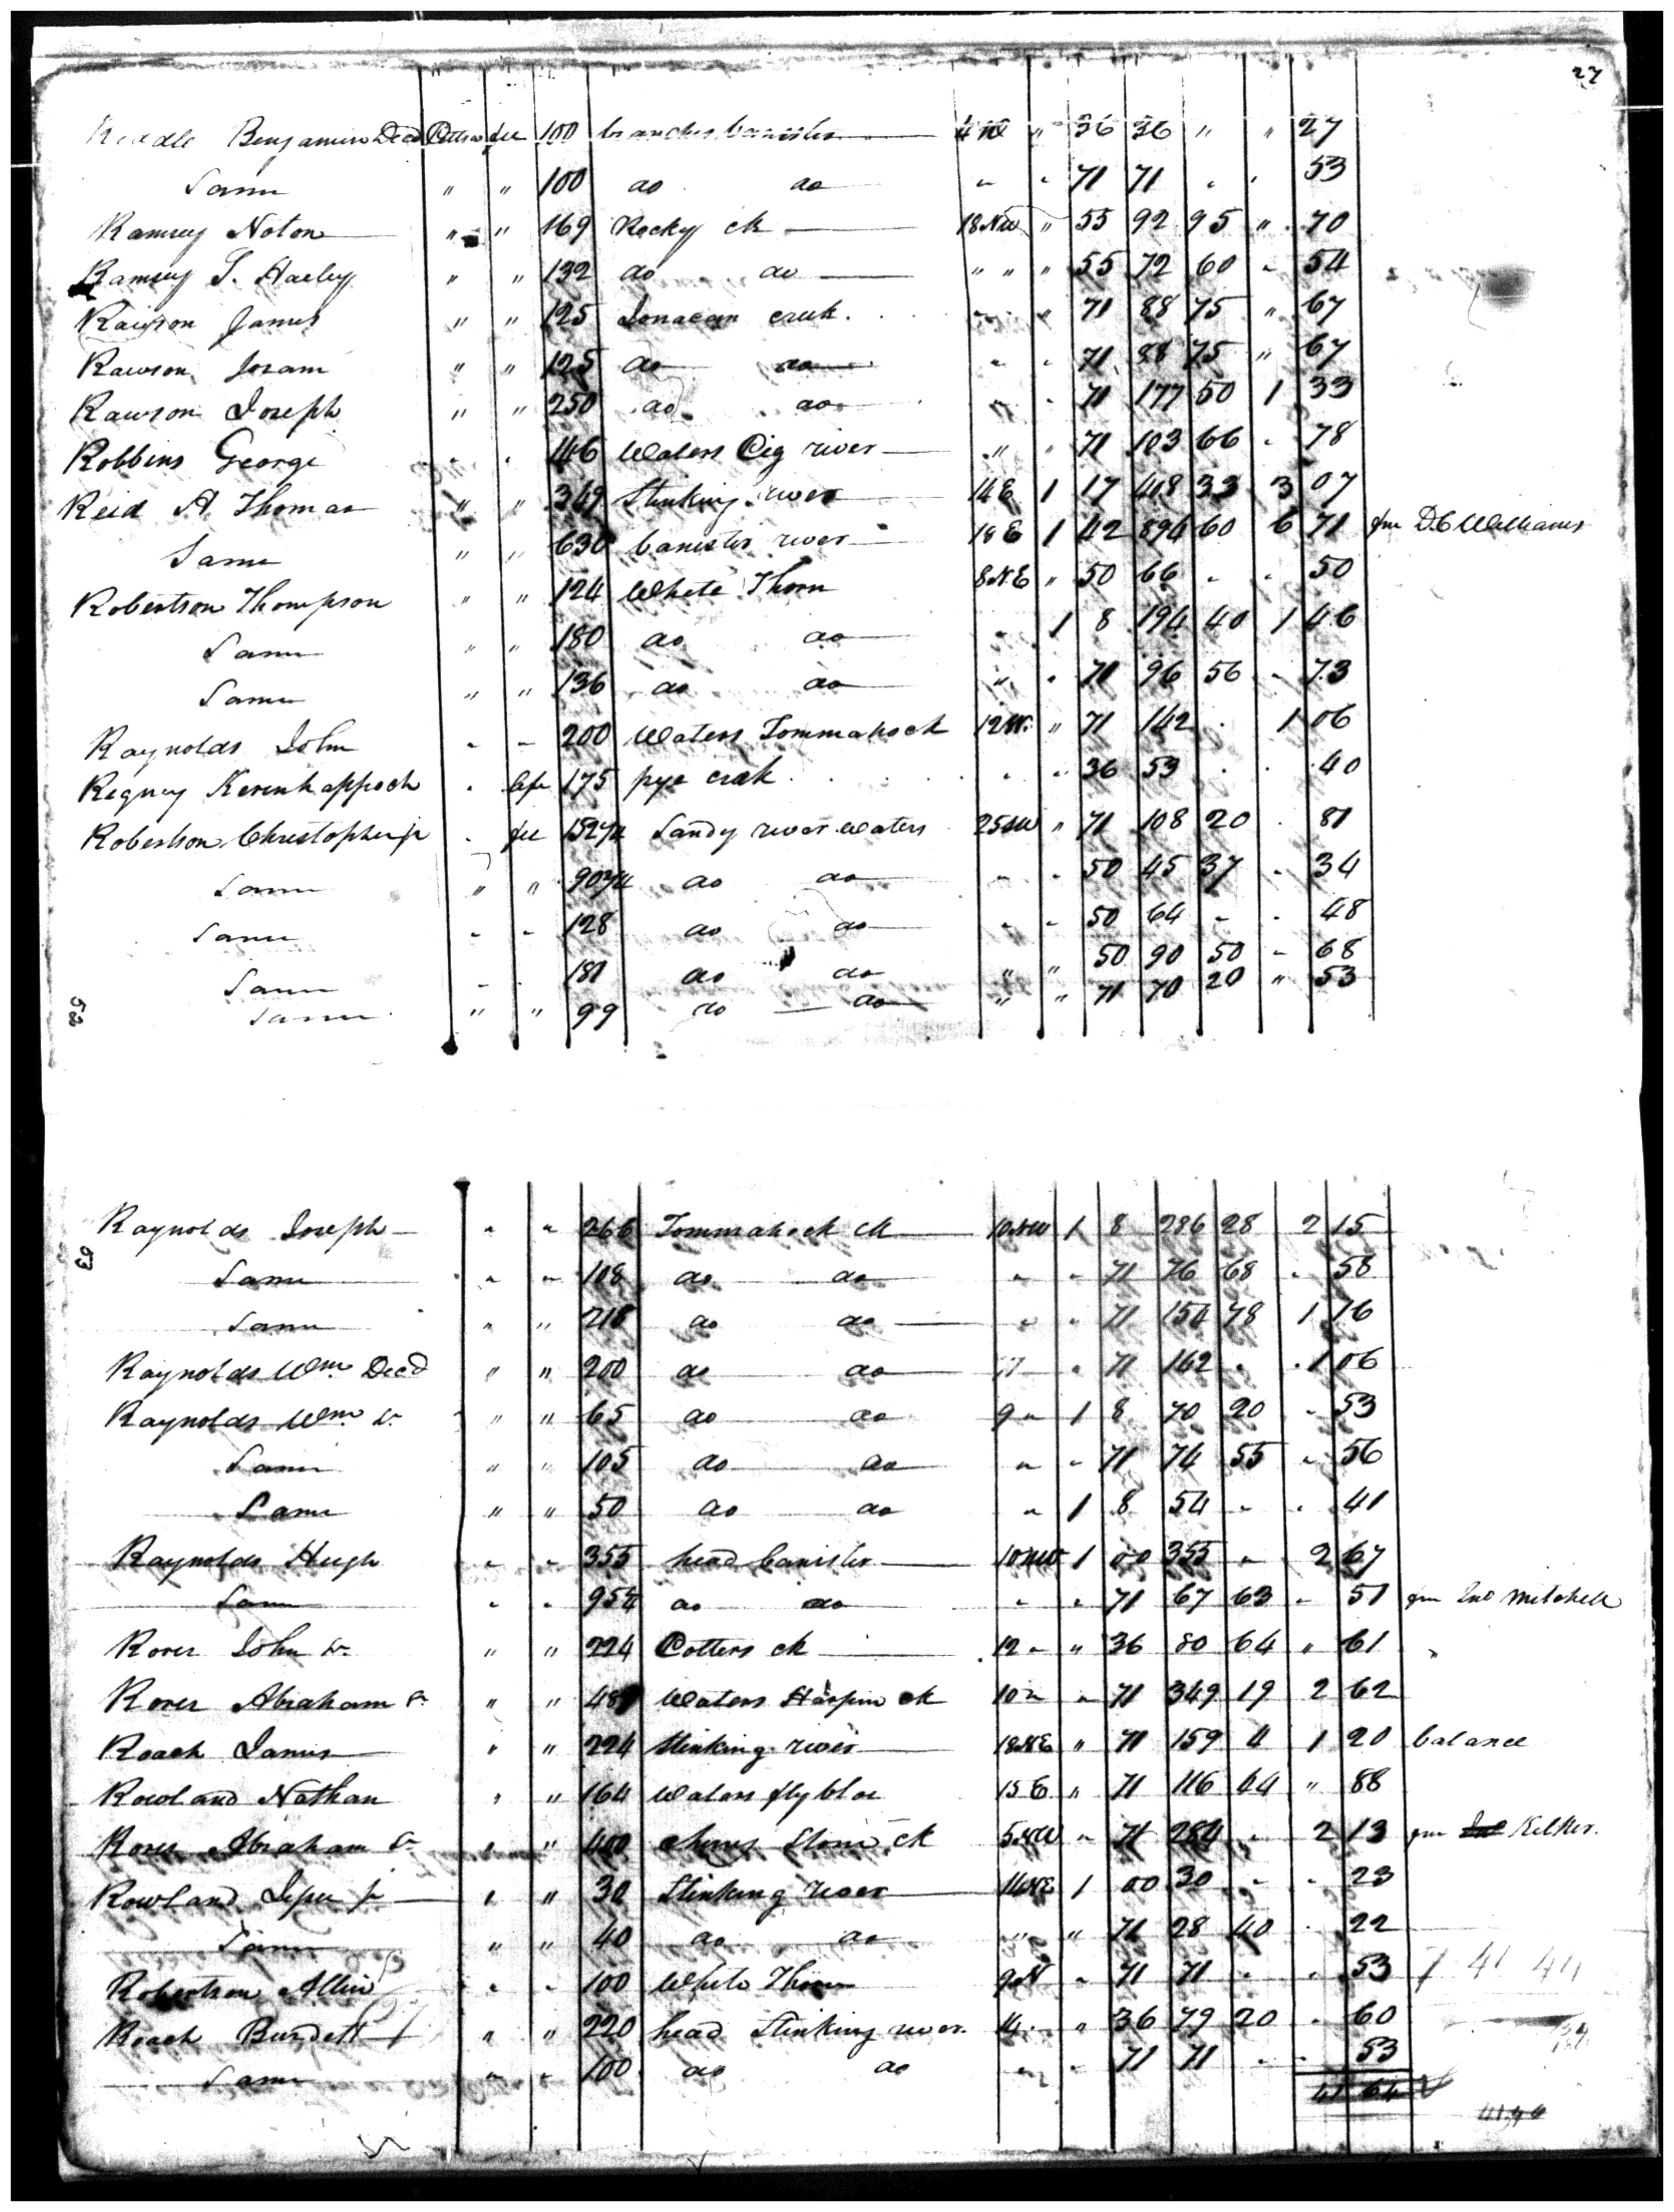 27
Benjamin Decd Pittsa fee 100 branches banister 4 " 36 36 " " 27
Same " " 100 do do " " 71 71 " " 53
Ramsey Noton " " 169 Rocky ck 18 NW " 55 92 95 " 70
Ramsey T. Haeley " " 132 do do " " " 55 72 60 " 54
Rawson James " " 125 creek " " 71 88 75 " 67
Rawson " " 125 do do " " 71 88 75 " 67
Rawson Joseph " " 250 do do " " 71 177 50 1 33
Robbins George " " 146 Waters Pig river " " 71 103 66 " 78
Reid A Thomas " " 349 Stinking river 14 E 1 17 418 33 3 07
Same " " 630 banister river 18 E 1 42 894 60 6 71 fm D.C Williams
Robertson Thompson " " 124 White Thorn 8 NE " 50 66 " " 50
Same " " 180 do do " 1 8 194 40 1 46
Same " " 136 do do " " 71 96 56 " 73
Raynolds John " " 200 Waters Tommahock 12 " 71 142 " 1 06
Rigney Kerenhappoch " life 175 pye creek " " 36 53 " " 40
Robertson Christopher jr " fee 152 1/4 Sandy river waters 25 SW " 71 108 20 " 81
Same " " 90 3/4 do do " " 50 45 37 " 34
Same " " 128 do do " " 50 64 " " 48
Same " " 181 do do " " 50 90 50 " 68
52
Same " " 99 do do " " 71 70 20 " 53
Raynolds Joseph " " 266 Tommahock ck 10 NW 1 8 286 28 2 15
53
Same " " 108 do do " " 71 76 68 " 58
Same " " 218 do do " " 71 154 78 1 16
Raynolds Wm Decd " " 200 do do " " 71 142 " 1 06
Raynolds Wm Sr " " 65 do do 9 " 1 8 70 20 " 53
Same " " 105 do do " " 71 74 55 " 56
Same " " 50 do do " 1 8 54 " " 41
Raynolds Hugh " " 355 head banister 10 NW 1 00 355 " 2 67
Same " " 95 1/4 do do " " 71 67 63 " 51 fm Jno Mitchell
Rorer John Sr " " 224 Potters ck 12 " " 36 80 64 " 61 "
Rorer Abraham Sr " " Waters Harpin ck 10 " " 71 349 19 2 62
Roach James " " 224 Stinking river 18 NE " 71 159 4 1 20 balance
Rowland Nathan " " 164 Waters flyblow 15 E " 71 116 44 " 88
Rorer Abraham Sr " " 400 Stone ck 5 NW " 71 284 " 2 13 fm
Rowland Jesse jr " " 30 Stinking river 14 NE 1 00 30 " " 23
Same " " 40 do do " " 71 28 40 " 22
Robertson Allin " " 100 White Thorn 9 N " 71 71 " " 53 7 41 44
Roach Burdett " " 220 head Stinking river 14 " " 36 79 20 " 60
Same " " 100 do do " " 71 71 " " 53
41 64